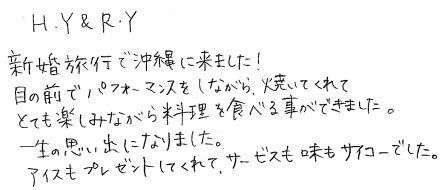 H.Y & R.Y
新婚旅行で沖縄に来ました!
目の前でパフォーマンスをしながら、焼いてくれて
とても楽しみながら料理を食べる事ができました。
一生の思い出になりました。
アイスもプレゼントしてくれて、サービスも味もサイコーでした。